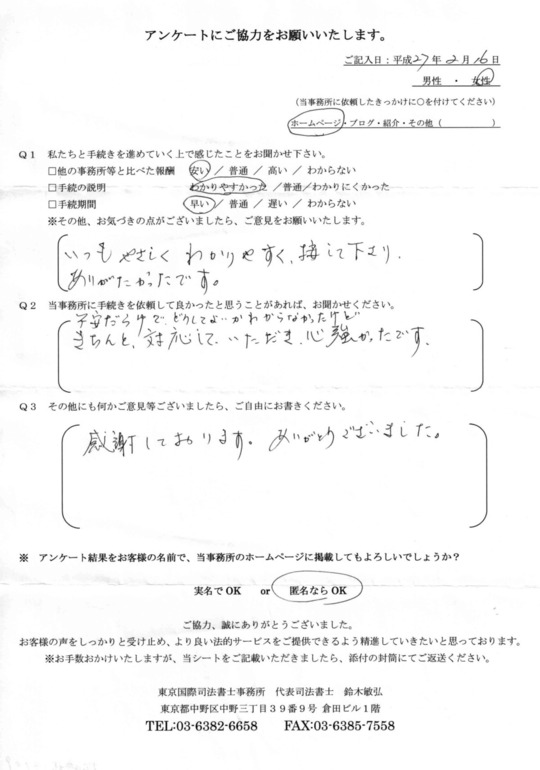 アンケートにご協力をお願いいたします。
ご記入日：平成27年2月16日
男性 ・ 女性
（当事務所に依頼したきっかけに○を付けてください）
ホームページ・ブログ・紹介・その他（　　　　　）
Q1 私たちと手続きを進めていく上で感じたことをお聞かせ下さい。
□他の事務所等と比べた報酬 安い ／ 普通 ／ 高い ／ わからない
□手続の説明 わかりやすかった ／普通／わかりにくかった
□手続期間 早い ／ 普通 ／ 遅い ／ わからない
※その他、お気づきの点がございましたら、ご意見をお願いします。
いつもやさしくわかりやすく、接して下さり、
ありがたかったです。
Q2 当事務所に手続きを依頼して良かったと思うことがあれば、お聞かせください。
不安だらけで、どうしてよいかわからなかったけど
きちんと、対応して、いただき、心強かったです。
Q3 その他にも何かご意見等ございましたら、ご自由にお書きください。
感謝しております。ありがとうございました。
※ アンケート結果をお客様の名前で、当事務所のホームページに掲載してもよろしいでしょうか？
実名でOK or 匿名ならOK
ご協力、誠にありがとうございました。
お客様の声をしっかりと受け止め、より良い法的サービスをご提供できるよう精進していきたいと思っております。
※お手数おかけいたしますが、当シートをご記載いただきましたら、添付の封筒にてご返送ください。
東京国際司法書士事務所 代表司法書士 鈴木敏弘
東京都中野区中野三丁目３９番９号 倉田ビル１階
TEL:03-6382-6658 FAX:03-6385-7558